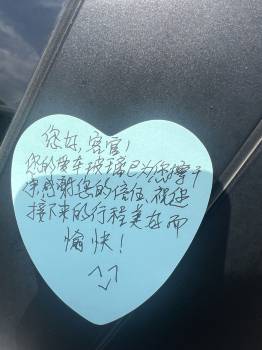 您好,客官!
您的爱车玻璃已为您擦干
净感谢您的信任,祝您
接下来的行程美好而
愉快!